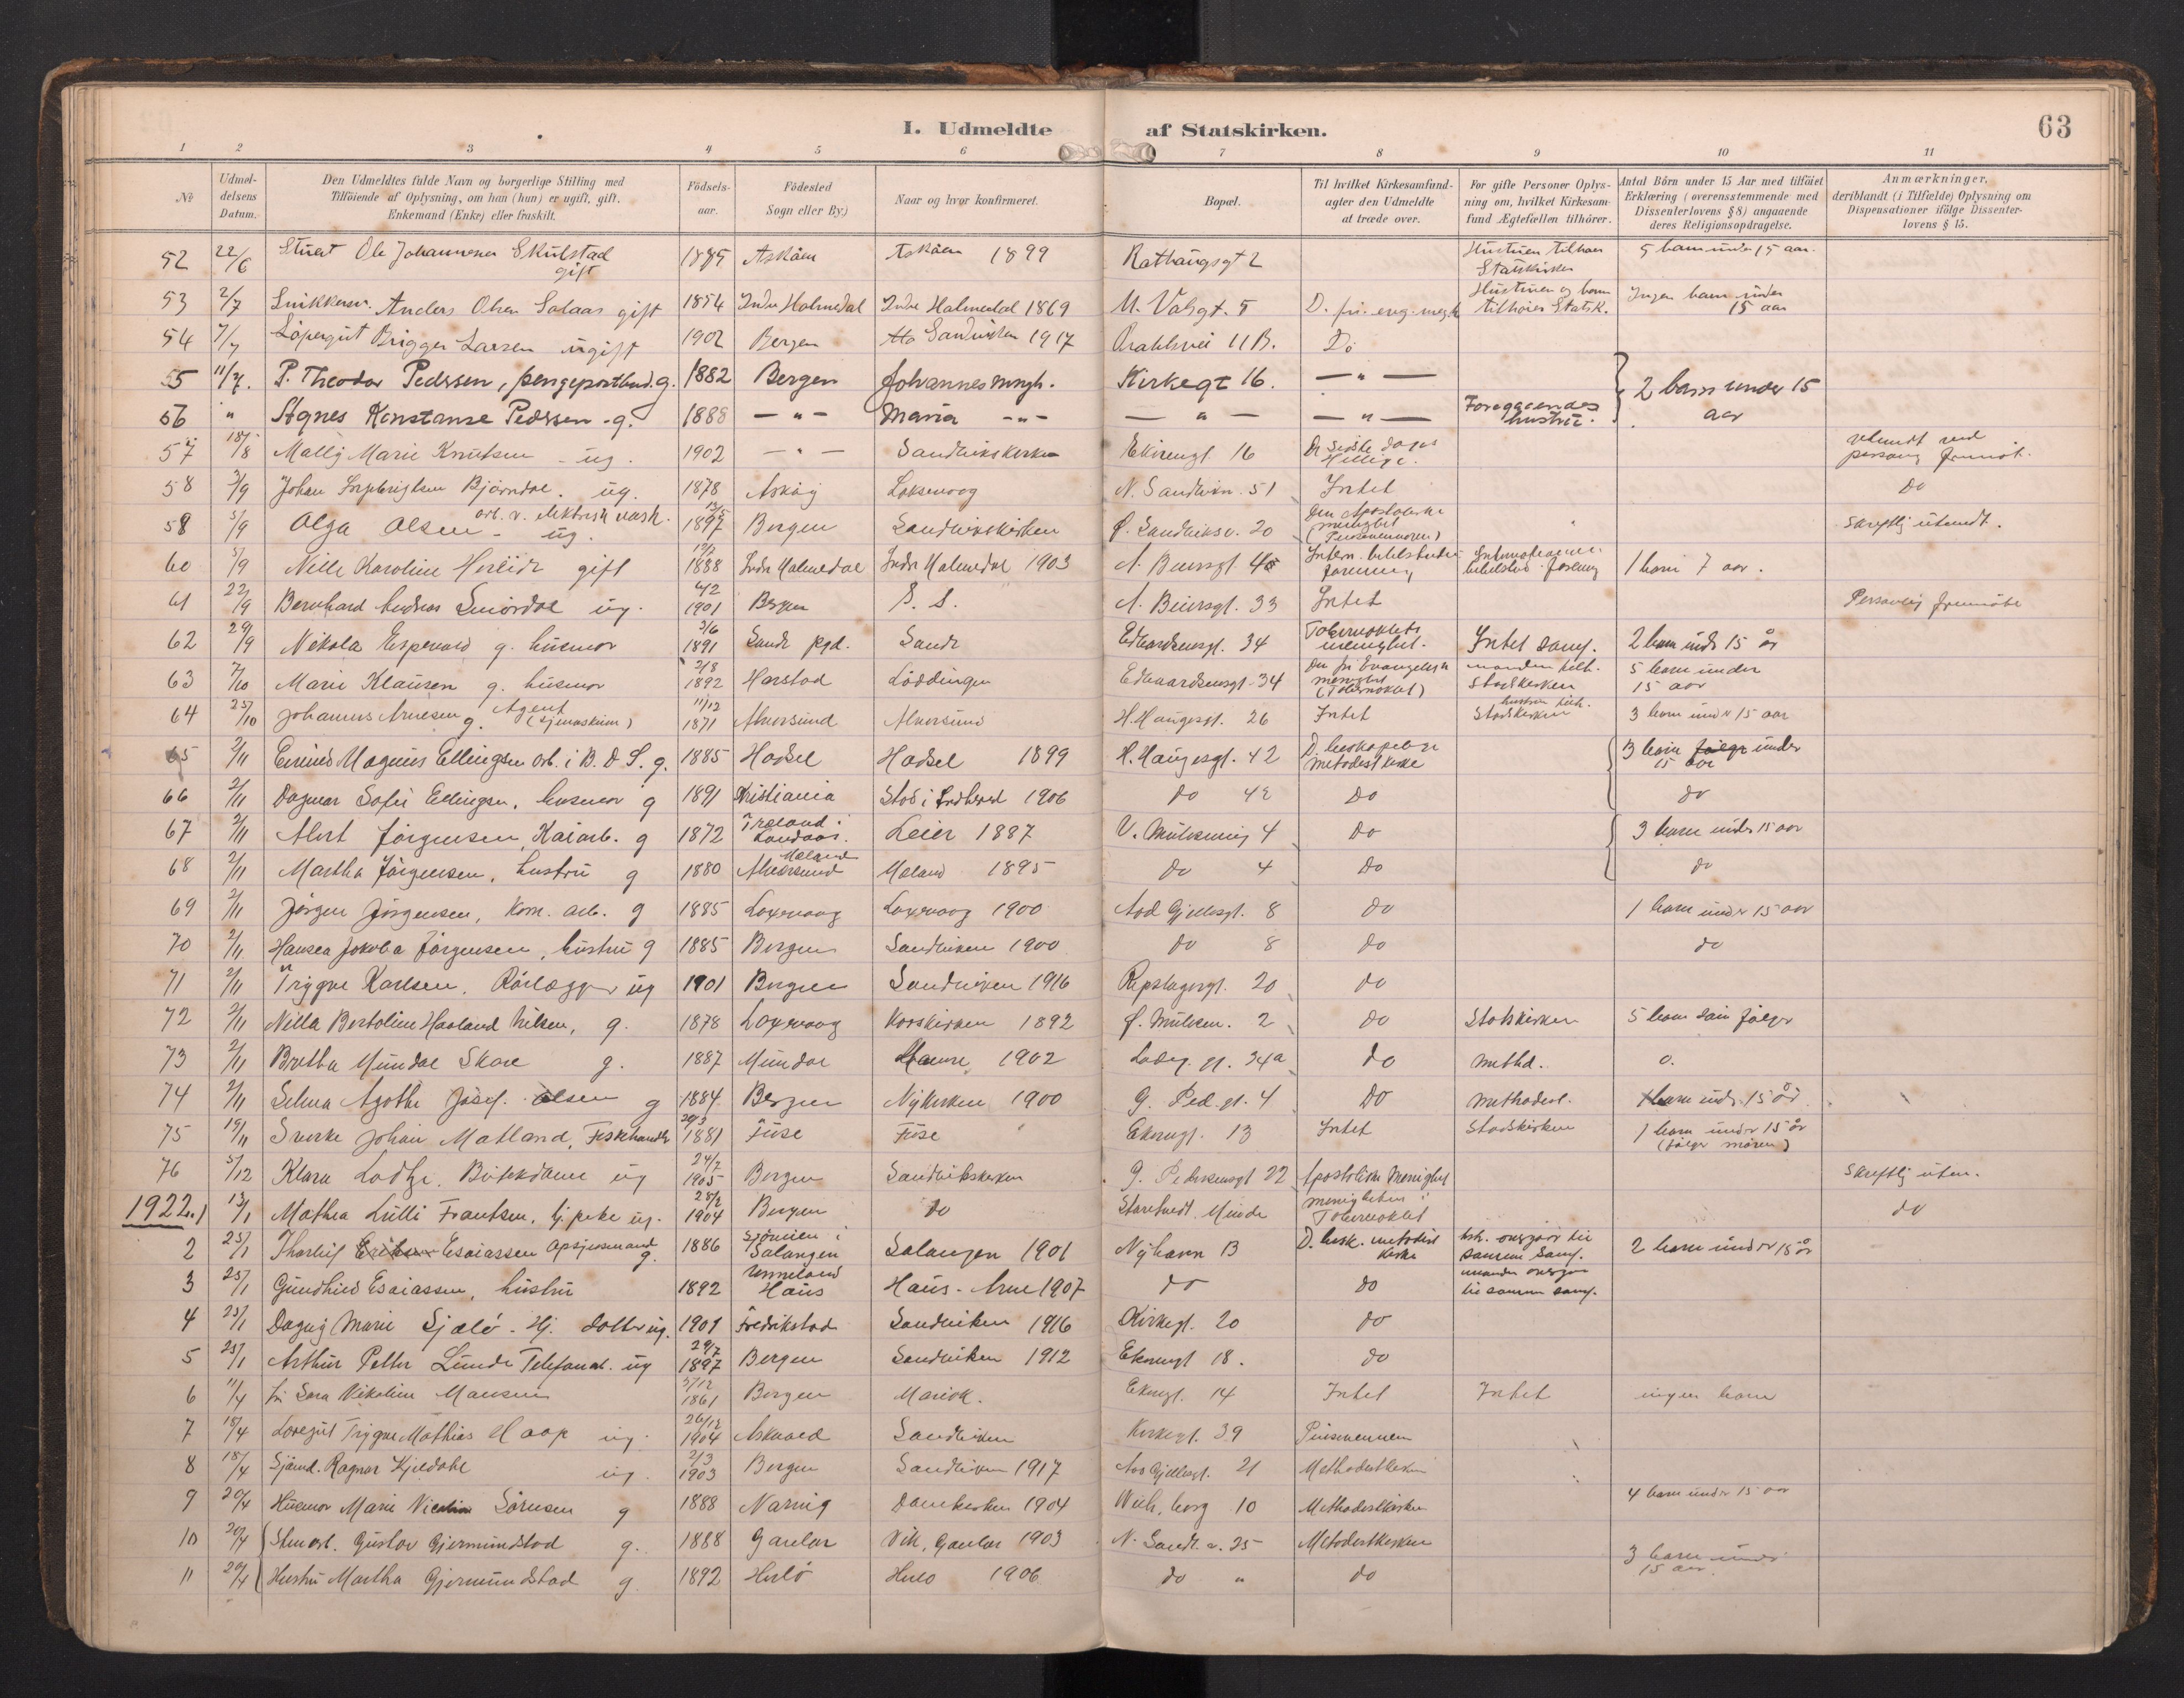 I. Udmeldte af Statskirken. 63
1 2 3 4 5 6 7 8 9 10 11
№ Udmel-delsens Datum. Den Udmeldtes fulde Navn og borgerlige Stilling med Tilföiende af Oplysning, om han (hun) er ugift, gift, Enkemand (Enke) eller fraskilt. Födsels-aar. Födested Sogn eller By.) Naar og hvor konfirmeret. Bopæl. Til hvilket Kirkesamfund agter den Udmeldte at træde over. For gifte Personer Oplys-ning om, hvilket Kirkesam-fund Ægtefællen tilhörer. Antal Börn under 15 Aar med tilföiet Erklæring (overensstemmende med Dissenterlovens § 8) angaaende deres Religionsopdragelse. Anmærkninger, deriblandt (i Tilfælde) Oplysning om Dispensationer ifölge Dissenter-lovens § 15.
52 22/6 Ole Johannesen Skulstad gift 1885 Askøen Askøen 1899 2 Hustruen tilhører Statskirken 5 barn under 15 aar.
53 2/7 Anders Olsen Solaas gift 1854 Indre Holmedal Indre Holmedal 1869 Hustruen og barn tilhører Statsk. Ingen barn under 15 aar
54 7/7 Löpergut Brigger Larsen ugift 1902 Bergen Sandviken 1917 11 B. Do
55 11/7. P. Theodor Pedersen, g. 1882 Bergen Johannes mngh. Kirkegt 16. — " — 2 barn under 15 aar
56 " Agnes Konstanse Pedersen - g. 1888 — " — Maria — " — — " — — " — Foregaaendes hustru.
57 18/8 Mally Marie Knutsen - ug. 1902 — " — Sandvikskirken Ekrengt 16 De Sidste dages Hellige.
58 3/9 Johan Bjørndal. ug. 1878 Askøy Loksevaag N. Sandvikv. 51 Intet Do
58 5/9 Olga Olsen - arb. v. elektrisk vask. ug. 1897 Bergen Sandvikskirken Ø. Sandviksv. 20 Den Apostoliske menighet (Pinsevennerne) Skriftlig utmeldt.
60 5/9 Nille Karoline Herlids gift 1888 Indre Holmedal Indre Holmedal 1903 1 barn 7 aar.
61 22/9 Bernhard Andreas Smørdal ug. 4/2 1901 Bergen S. S. A. Beiersgt. 33 Intet Personlig fremmøte
62 29/9 Nikola Espevold g. husmor 3/6 1891 Sande pgd. Sande Edvardsensgt. 34 Tabernaklets menighet. Intet samf. 2 barn under 15 år
63 7/10 Marie Klausen g. husmor 3/8 1892 Harstad Löddingen Edvaardsensgt. 34 Den fri Evangeliske menighet (Tabernaklet) manden tilh. Statskirken 5 barn under 15 aar
64 25/10 Johannes Arnesen g. Agent (symaskin) 11/12 1871 Alversund Alversund H. Haugesgt. 26 Intet hustruen tilh. Statskirken 3 barn under 15 aar
65 2/11 Magnus Ellingsen arb. i B. D. S. g. 1885 Hadsel Hadsel 1899 H. Haugesgt. 42 D. biskopelige metodistkirke 3 barn under 15 aar
66 2/11 Dagmar Sofie Ellingsen, husmor g 1891 Kristiania Stod i 1906 do 42 Do do
67 2/11 Alert Jörgensen, Kaiarb. g 1872 Leier 1887 4 Do 3 barn under 15 aar
68 2/11 Martha Jörgensen, hustru g 1880 Alversund Meland Meland 1895 do 4 Do do
69 2/11 Jörgen Jörgensen, Kom. arb. g 1885 Loxevaag Loxevaag 1900 Aad Gjellesgt. 8 do 1 barn under 15 aar
70 2/11 Hansea Jakoba Jörgensen, hustru g 1885 Bergen Sandviken 1900 do 8 do do
71 2/11 Trygve Karlsen, Rörlægger ug 1901 Bergen Sandviken 1916 Repslagergt. 20 do
72 2/11 Nilla Bertoline Haaland Nilsen, g. 1878 Loxevaag Korskirken 1892 2 do Statskirken 5 barn som følger
73 2/11 Bertha Mundal Skare g. 1887 Mundal 1902 34a do methd. 0.
74 2/11 Selma Agathe Josef. Olsen g 1884 Bergen Nykirken 1900 G. Ped. gt. 4 Do methodist. 1 barn under 15 år
75 19/11 Sverke Johan Matland, Fiskehandler 20/3 1881 Fuse Fuse Ekrengt. 13 Intet Statskirken 1 barn under 15 år (følger moren)
76 5/12 Klara Lodtz. Butikdame ug 24/7 1905 Bergen Sandvikskirken G. Pedersensgt 22 Apostolisk Menighet Skriftlig utm.
1922. 1 13/1 Mathea Lulli Frantsen, tj. peke ug. 28/2 1904 Bergen do Storetvedt Minde menigheten i Tabernaklet do
2 25/1 Tharleif Esaiassen Opsynsmand g. 1886 Sjöveien i Salangen Salangen 1901 Nyhavn 13 D. bisk. metodist kirke hst. overgaar til samme samf. 2 barn under 15 år
3 25/1 Gundhild Esaiassen, hustru 1892 Unneland Haus Haus - Arne 1907 do do manden overgaar til samme samf.
4 25/1 Dagny Marie Sjølø. Hj. datter ug. 1901 Fredrikstad Sandviken 1916 Kirkegt. 20 do
5 25/1 Arthur Petter Lunde Telefonarb. ug 29/7 1897 Bergen Sandviken 1912 Ekrengt 18. do
6 11/4 fr. Sara Nikoline Monsen 3/12 1861 Bergen Mariak. Ekrengt. 14 Intet Intet ingen barn
7 18/4 Trygve Mathias Haap ug. 26/12 1904 Askvold Sandviken Kirkegt. 39 Pinsevennen
8 18/4 Sjømd. Ragnar Kjeldahl ug. 2/3 1903 Bergen Sandviken 1917 Aad Gjellesgt. 21 Methodistkirken
9 20/4 Husmor Marie Sörensen g 1888 Narvig Domkirken 1904 Wilh. borg 10 Methodistkirken 4 barn under 15 aar
10 20/4 Stenarb. Gustav Gjermundstad g. 1888 Gaular Vik, Gaular 1903 N. Sandv. v. 25 Metodistkirken 3 barn under 15 aar.
11 20/4 Hustru Martha Gjermundstad g. 1892 Herlö Herlö 1906 do " do